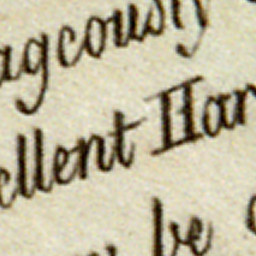 agcously
ellent Har
be